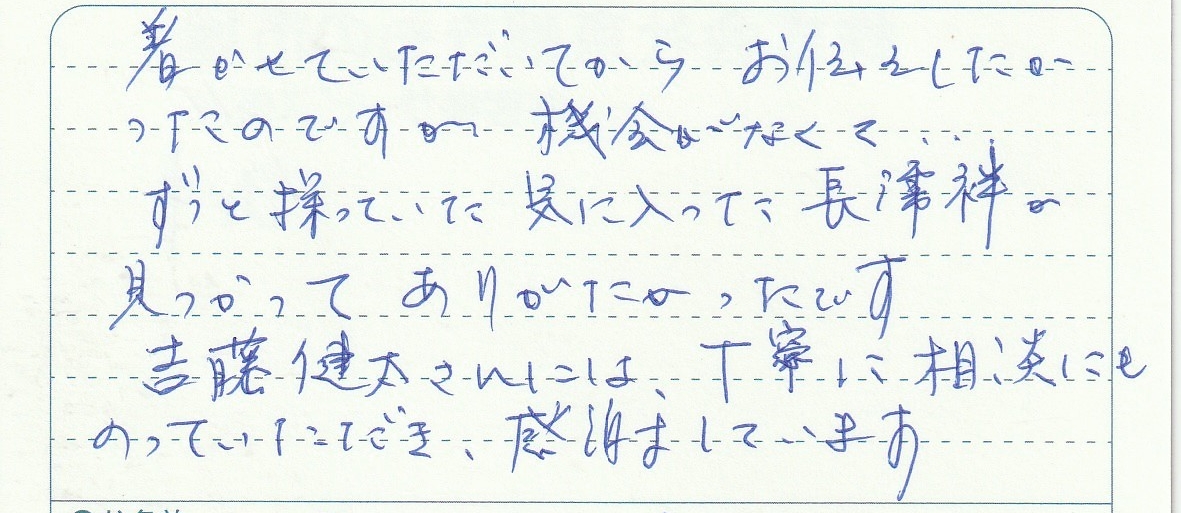 着させていただいてから お伝えしたか
ったのですが 機会がなくて...
ずっと探っていた 気に入った 長濡袢が
見つかって ありがたかったです
吉藤健太さんには、丁寧に相談にも
のっていただき、感謝しています